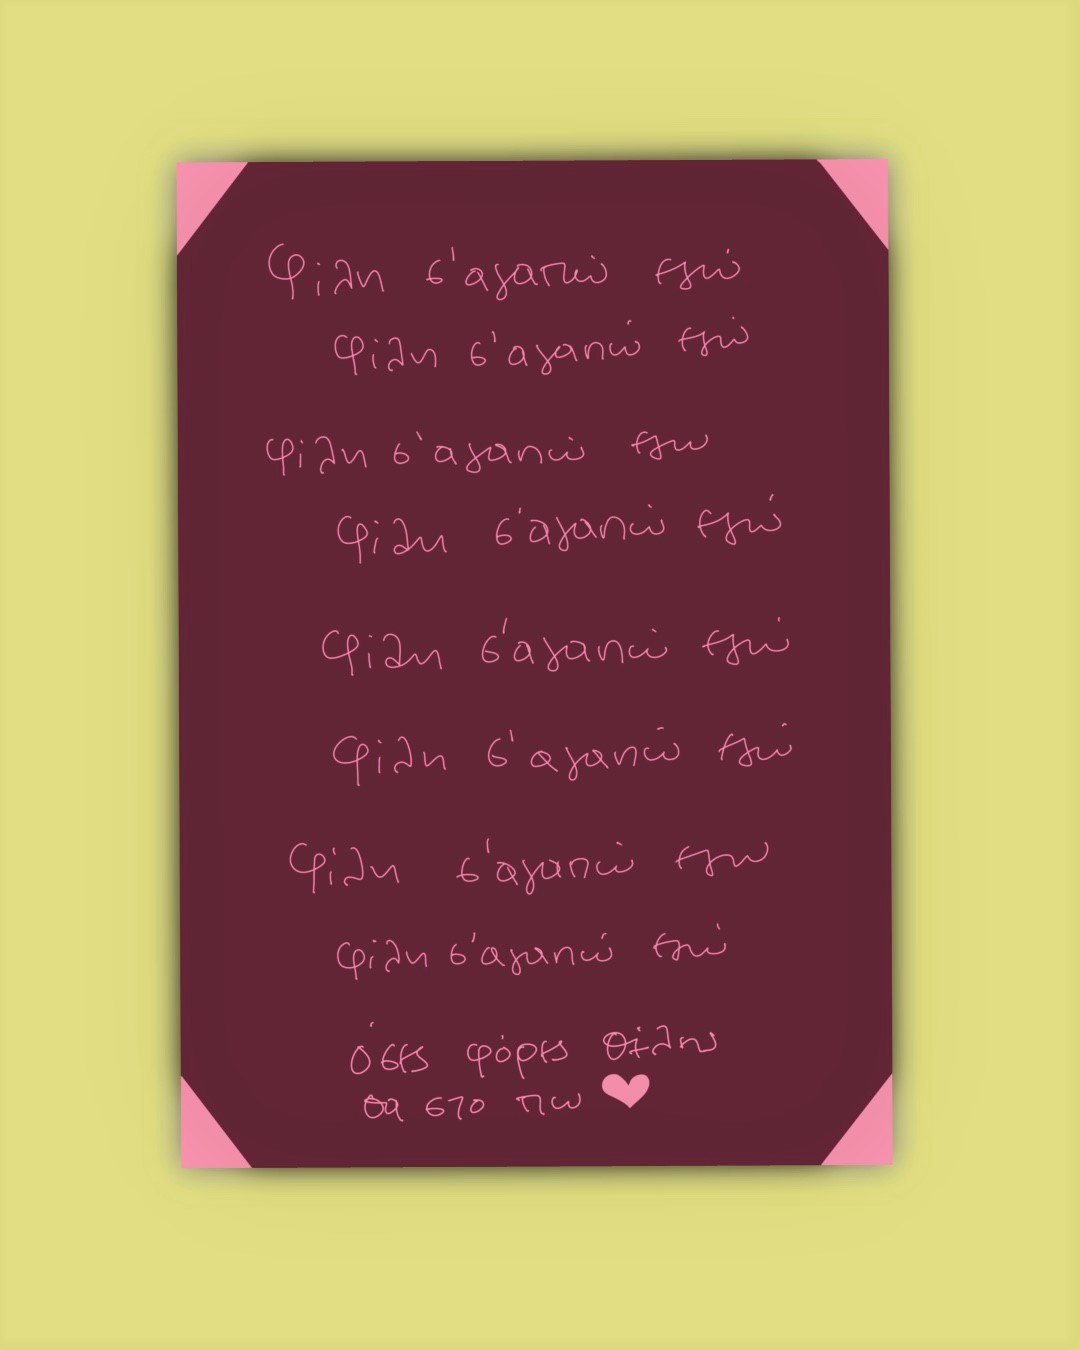 φίλη σ'αγαπώ εγώ
φίλη σ'αγαπώ εγώ
φίλη σ'αγαπώ εγω
φίλη σ'αγαπώ εγώ
φίλη σ'αγαπώ εγώ
φίλη σ'αγαπώ εγώ
φίλη σ'αγαπώ εγω
φίλη σ'αγαπώ εγώ
όσες φόρες θέλης
θα στο πω